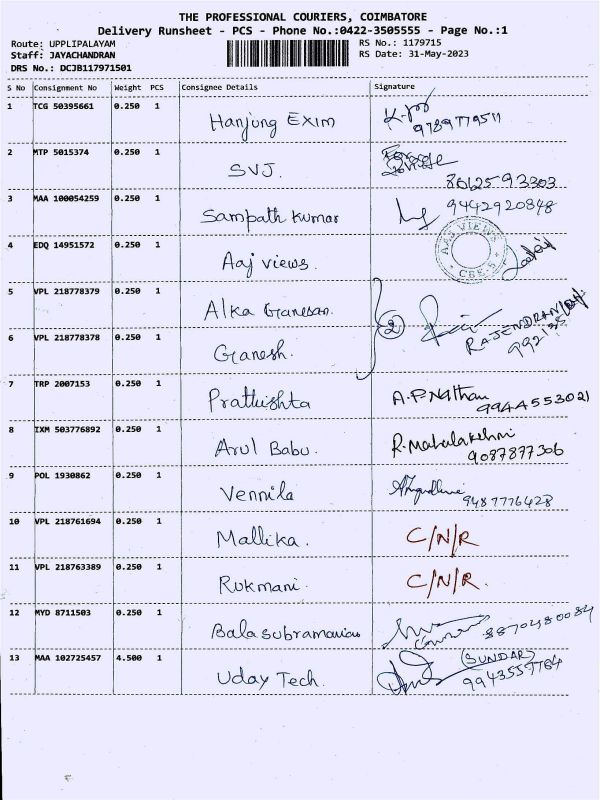 THE PROFESSIONAL COURIERS, COIMBATORE
Delivery Runsheet - PCS - Phone No.:0422-3505555 - Page No.:1
Route: UPPLIPALAYAM RS No.: 1179715
Staff: JAYACHANDRAN RS Date: 31-May-2023
DRS No.: DCJB117971501
S No Consignment No Weight PCS Consignee Details Signature
1 TCG 50395661 0.250 1 Hanjung Exim
9789779511
2 MTP 5015374 0.250 1 SVJ.
8062593303
3 MAA 100054259 0.250 1 Sampath Kumar 9442920848
4 EDQ 14951572 0.250 1 Aaj views.
AAJ VIEWS
CBE-5
5 VPL 218778379 0.250 1 Alka Ganesan.
2 RAJENDRAN
6 VPL 218778378 0.250 1 Ganesh.
7 TRP 2007153 0.250 1 Prathishta A.P.Nathan
9944553021
8 IXM 503776892 0.250 1 Arul Babu. R.Mahalakshmi
9087877306
9 POL 1930862 0.250 1 Vennila
9487776428
10 VPL 218761694 0.250 1 Mallika. C/N/R
11 VPL 218763389 0.250 1 Rukmani. C/N/R.
12 MYD 8711503 0.250 1 Balasubramanian 8870480084
13 MAA 102725457 4.500 1 Uday Tech. (SUNDAR)
9943557764